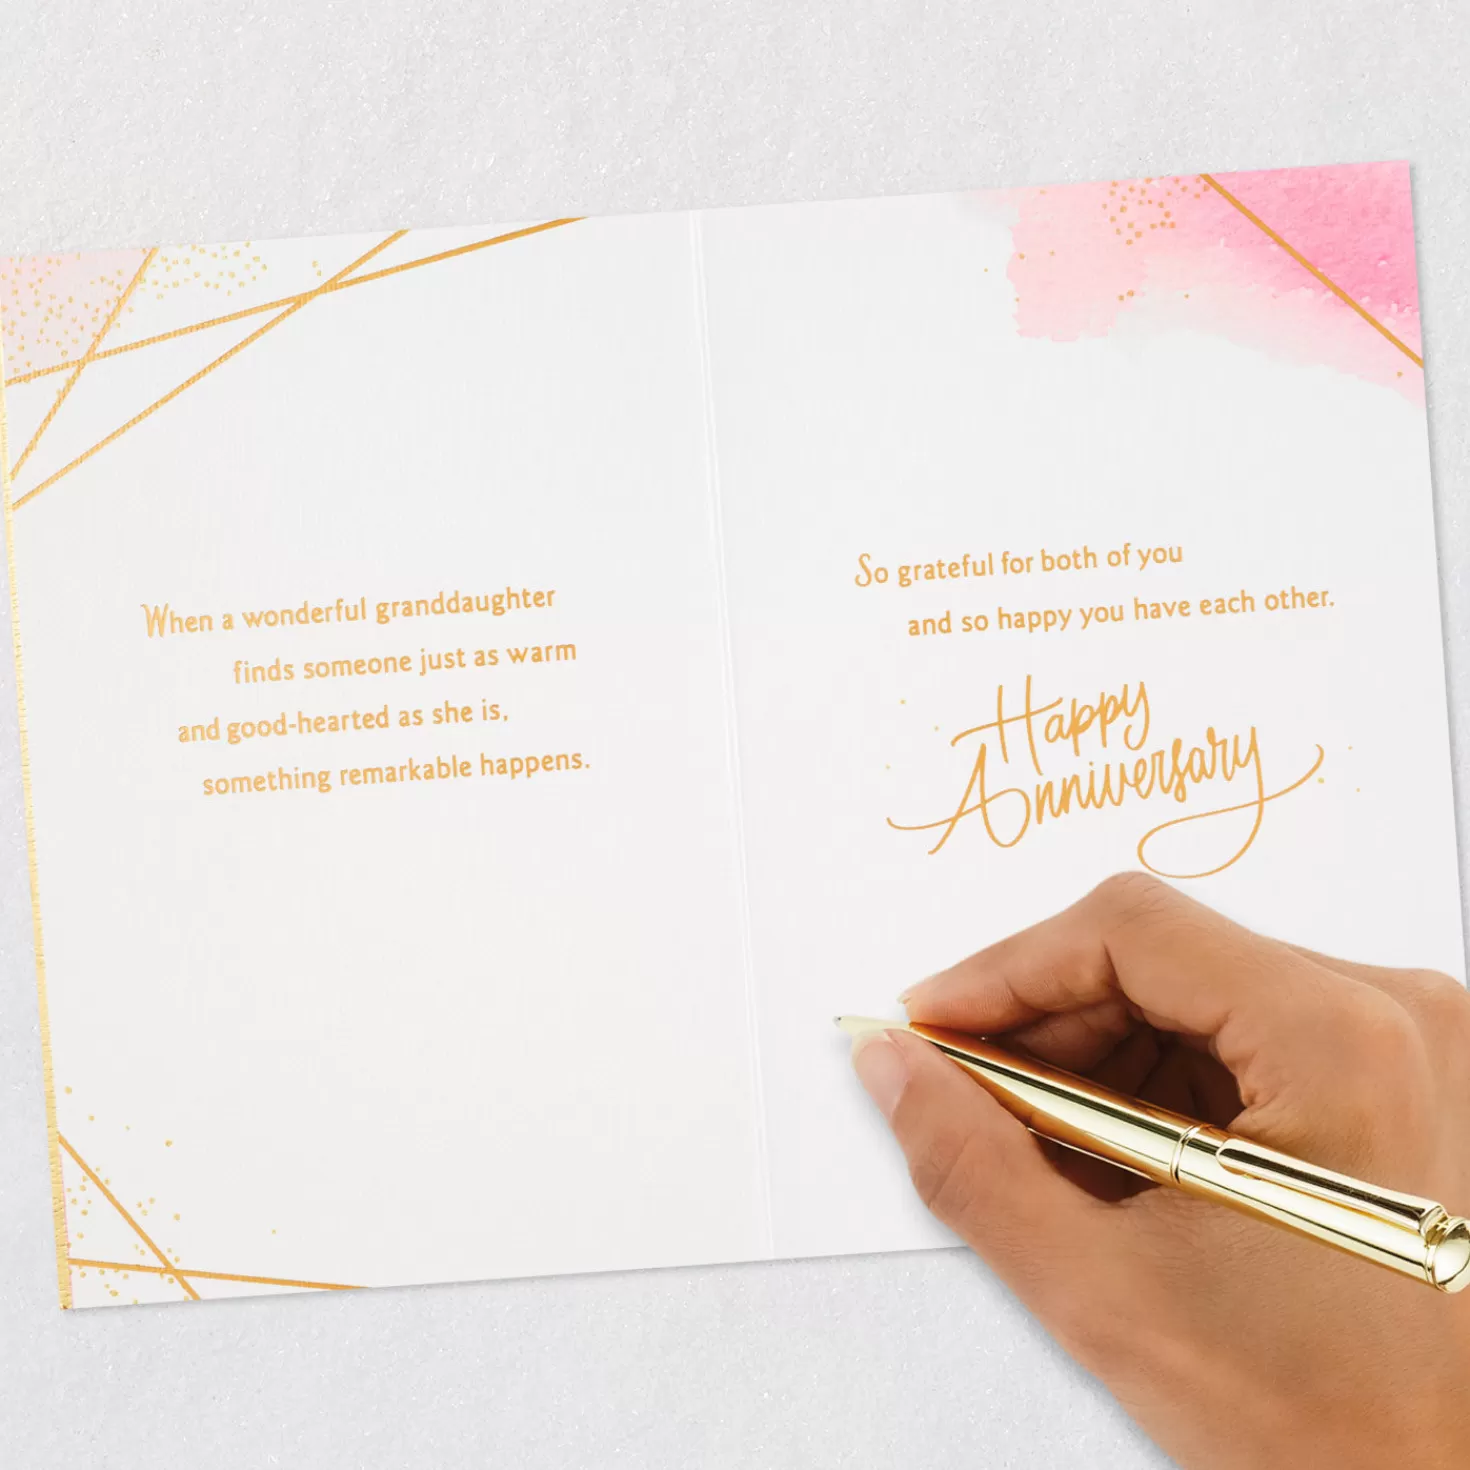 When a wonderful granddaughter
finds someone just as warm
and good-hearted as she is,
something remarkable happens.
So grateful for both of you
and so happy you have each other.
Happy
Anniversary